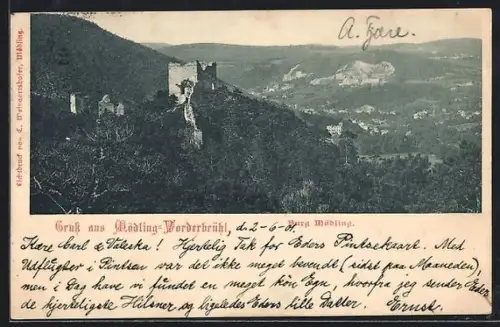 A. Fare.
Lichtdruck von C. Weingartshofer, Mödling.
Gruß aus Mödling-Vorderbrühl, d. 2-6-01. Burg Mödling.
Kære Carl & Valeska! Hjertelig Tak for Eders Pintsekaart. Med
Udflugter i Pintsen var det ikke meget bevendt (sidst paa Maaneden),
men i Dag have vi fundet en meget køn Egn, hvorfra jeg sender Eder
de hjerteligste Hilsner og ligeledes Eders lille Datter. Ernst.